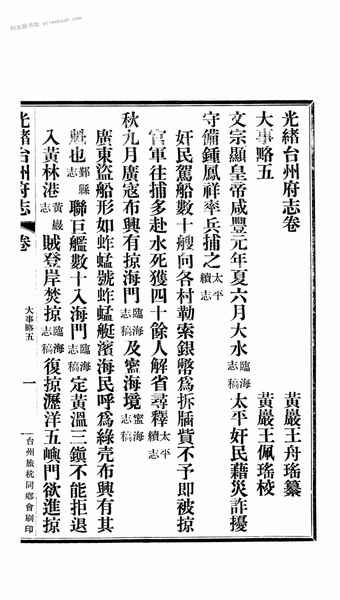 光緒台州府志卷
大事略五
黃巖王舟瑤纂
黃巖王佩瑤校
文宗顯皇帝咸豐元年夏六月大水臨海志稿太平奸民藉災詐擾
守備鍾鳳祥率兵捕之太平續志
奸民駕船數十艘向各村勒索銀幣為拆牆貲不予即被掠
官軍往捕多赴水死獲四十餘人解省尋釋太平續志
秋九月廣寇布興有掠海門臨海志稿及寗海境寗海志稿
廣東盜船形如蚱蜢號蚱蜢艇濱海民呼為綠壳布興有其
魁也鄞縣志聯巨艦數十入海門臨海志稿定黃溫三鎮不能拒退
入黃林港黃巖志賊登岸焚掠臨海志稿復掠瀝洋五嶼門欲進掠
光緒台州府志
卷
大事略五
一
台州旅杭同鄉會刷印